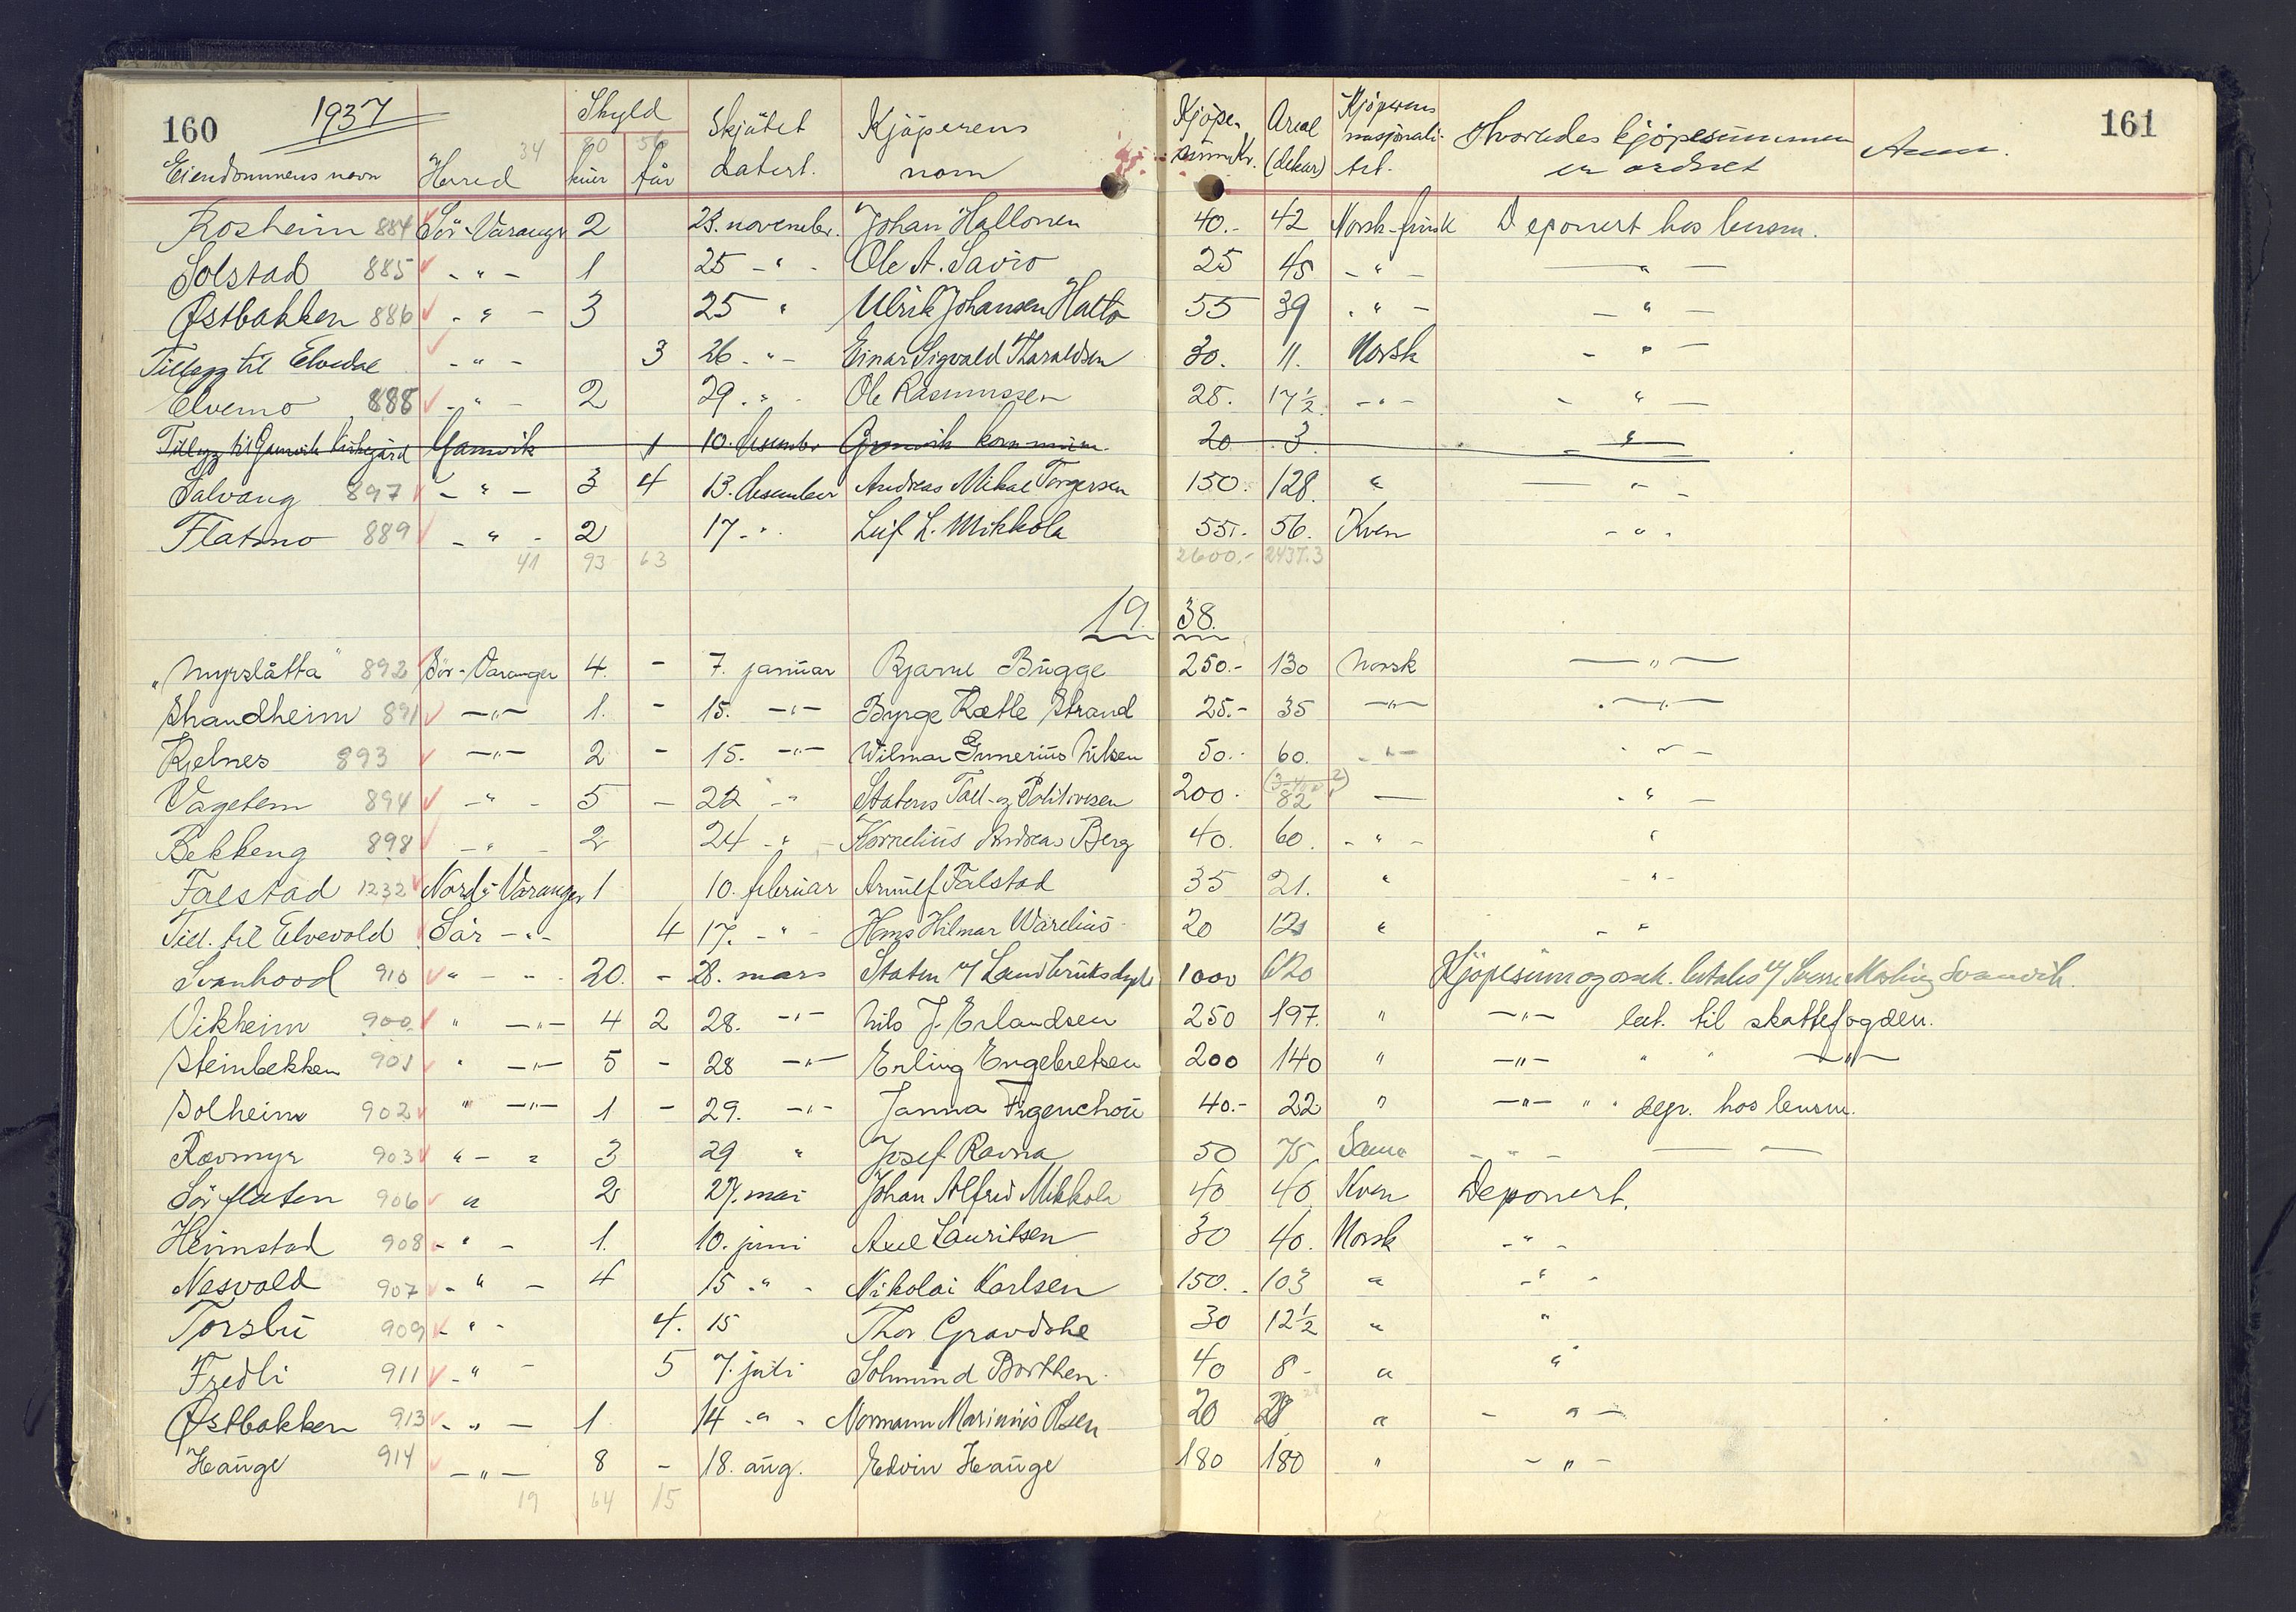 160 1937 Skyld Skjøtet Kjøperens Kjøpe- Areal Kjøperens Hvorledes kjøpesummen Anm. 161
34 80 56
Eiendommens navn Herred kuer får datert. navn sum Kr. (dekar) nasjonali- tet. er ordnet
Rosheim 884 Sör-Varanger 2 23. november. Johan Hallonen 40.- 42 Norsk-finsk Deponert hos lensm.
Solstad 885 - " - 1 25 - " - Ole A. Savio 25 45 - " - - " -
Østbakken 886 - " - 3 25 " Ulrik Johansen Halto 55 39 - " - - " -
Tillegg til Elvedal - " - 3 26 - " - Einar Sigvald Tharaldsen 30. 11. Norsk - " -
Elvemo 888 - " - 2 29 - " - Ole Rasmussen 28. 17½ - " - - " -
Tillegg til Gamvik kirkegård Gamvik 1 10. desember Gamvik kommune 20 3 - " -
Salvang 897 - " - 3 4 13. desember Andreas Mikal Torgersen 150. 128. " - " -
Flatmo 889 - " - 2 17 - " Leif L. Mikkola 55.- 56. Kven - " -
41 93 63 2600.- 2437.3
1938.
"Myrslåtta" 892 Sör-Varanger 4. - 7. januar Bjarne Bugge 250.- 130 Norsk - " -
Strandheim 891 - " - 1. - 15. - " - Byrge Rætle Strand 25.- 35 - " - - " -
Kjelnes 893 - " - 2 - 15. - " - Wilmar Gunerius Nilsen 50.- 60. - " - - " -
Vagetem 894 - " - 5 - 22 - " Statens Toll- og Politivesen 200.- 82 - - " -
Bekkeng 898 - " - 2 24 - " - Kornelius Andreas Berg 40. 60. - " - "
Falstad 1232 Nord-Varanger 1 10. februar Arnulf Falstad 35 21. " - " -
Till. til Elvevold Sør - " - 4 17. - " - Hans Hilmar Warelius 20 12 " - " -
Svanhovd 910 " - " - 20. - 28. mars Staten v/ Landbruksdept. 1000 620 Kjøpesum og omk. betales v/ Sverre Svanvik.
Vikheim 900 " - " - 4 2 28. - " - Nils J. Erlandsen 250 197. " - " - bet. til skattefogden.
Steinbekken 901 " - " - 5 - 28 - " - Erling Engebretsen 200 140 " - " - " " - " -
Solheim 902 " - " - 1 - 29. - " - Janna Figenchou 40.- 22 " - " - " " depr. hos lensm.
Rævmyr 903 " - " 3 29 " Josef Ravna 50 75 Same - " -
Sör flaten 906 " 2 27. mai Johan Alfred Mikkola 40 40 Kven Deponert.
Heimstad 908 - " - 1. 10. juni Axel Lauritsen 30 40. Norsk - " -
Nesvold 907 - " - 4 15 - " - Nikolai Karlsen 150. 103 " - " -
Torsbu 909 - " - 4. 15 Thor Gravdahl 30 12½ " "
Fredli 911 - " - 5 7. juli Solmund Borthen 40 8 - " "
Østbakken 913 - " - 1 14 - " - Normann Marinius Olsen 20 28 " - " -
Hauge 914 - " - 8 - 18. aug. Edvin Hauge 180 180 " - " -
19 64 15